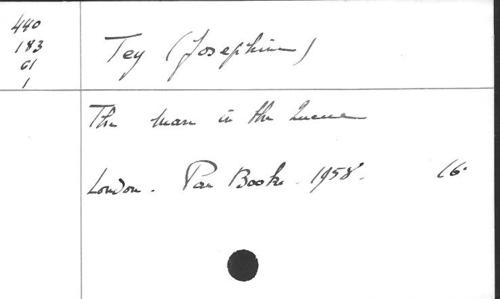 440
183
G1
1
Tey (Josephine)
The man in the Queue
London. Pan Books. 1958. 16°